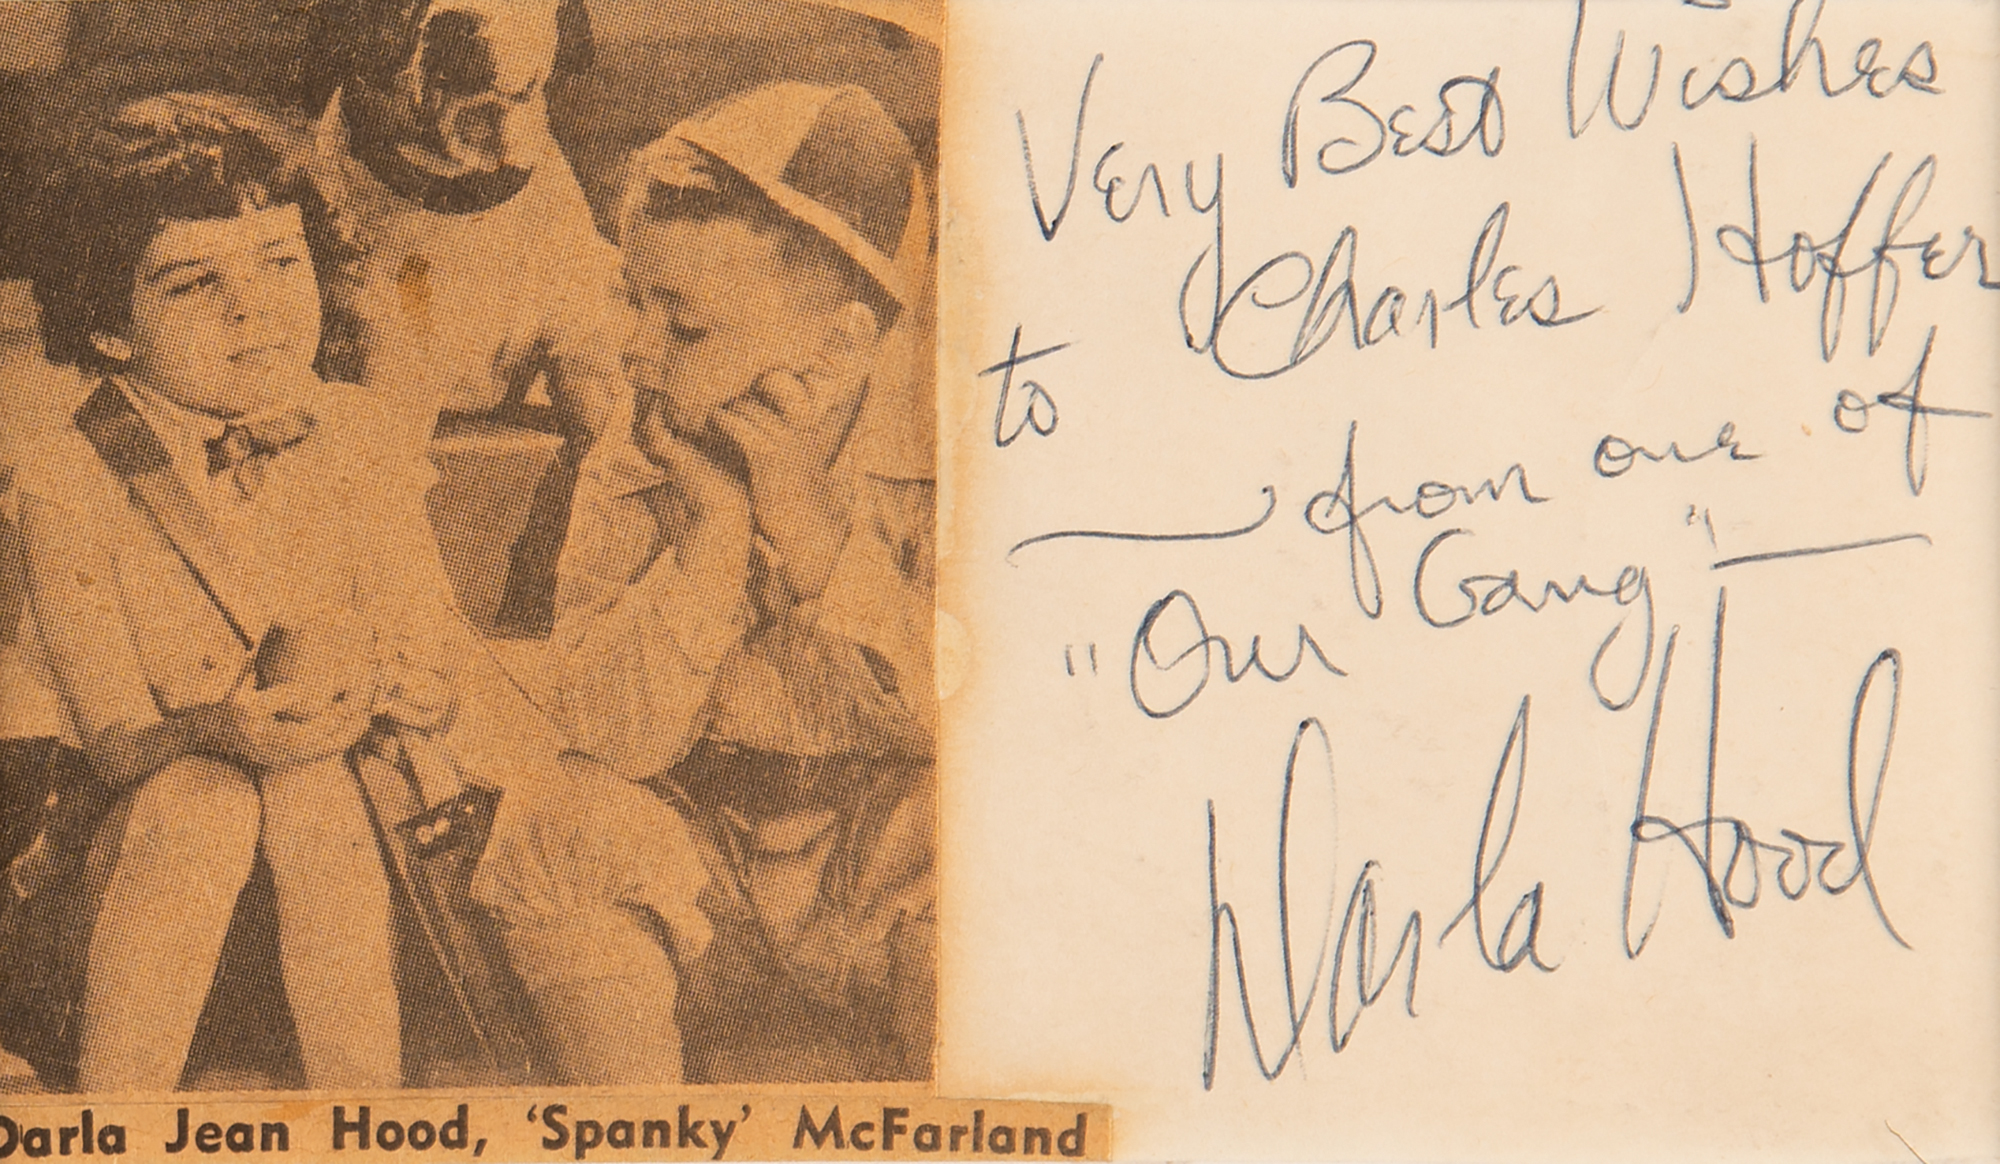 Very Best Wishes
to Charles Hoffer
— from one of
"Our Gang" —
Darla Hood
Darla Jean Hood, 'Spanky' McFarland